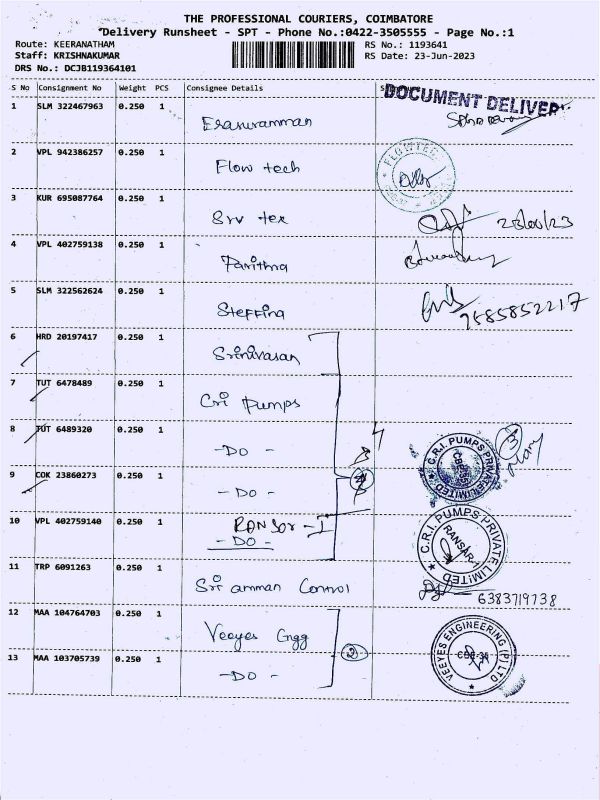 THE PROFESSIONAL COURIERS, COIMBATORE
Delivery Runsheet - SPT - Phone No.:0422-3505555 - Page No.:1
Route: KEERANATHAM RS No.: 1193641
Staff: KRISHNAKUMAR RS Date: 23-Jun-2023
DRS No.: DCJB119364101
S No Consignment No Weight PCS Consignee Details
DOCUMENT DELIVER
1 SLM 322467963 0.250 1
2 VPL 942386257 0.250 1 Flow tech
FLOWTECH
3 KUR 695087764 0.250 1 Srv tex
4 VPL 402759138 0.250 1 Pavithra
5 SLM 322562624 0.250 1 Steffina
7585852217
6 HRD 20197417 0.250 1 Srinivasan
7 TUT 6478489 0.250 1 Cri Pumps
8 TUT 6489320 0.250 1 -DO-
C.R.I. PUMPS PRIVATE LIMITED
3
9 COK 23860273 0.250 1 -DO-
4
10 VPL 402759140 0.250 1 RANSAR-I
-DO-
C.R.I. PUMPS PRIVATE LIMITED
RANSAR-I
11 TRP 6091263 0.250 1 Sri amman Control
6383719738
12 MAA 104764703 0.250 1 Veeyes Engg
VEEYES ENGINEERING (P) LTD
CBE-35
2
13 MAA 103705739 0.250 1 -DO-